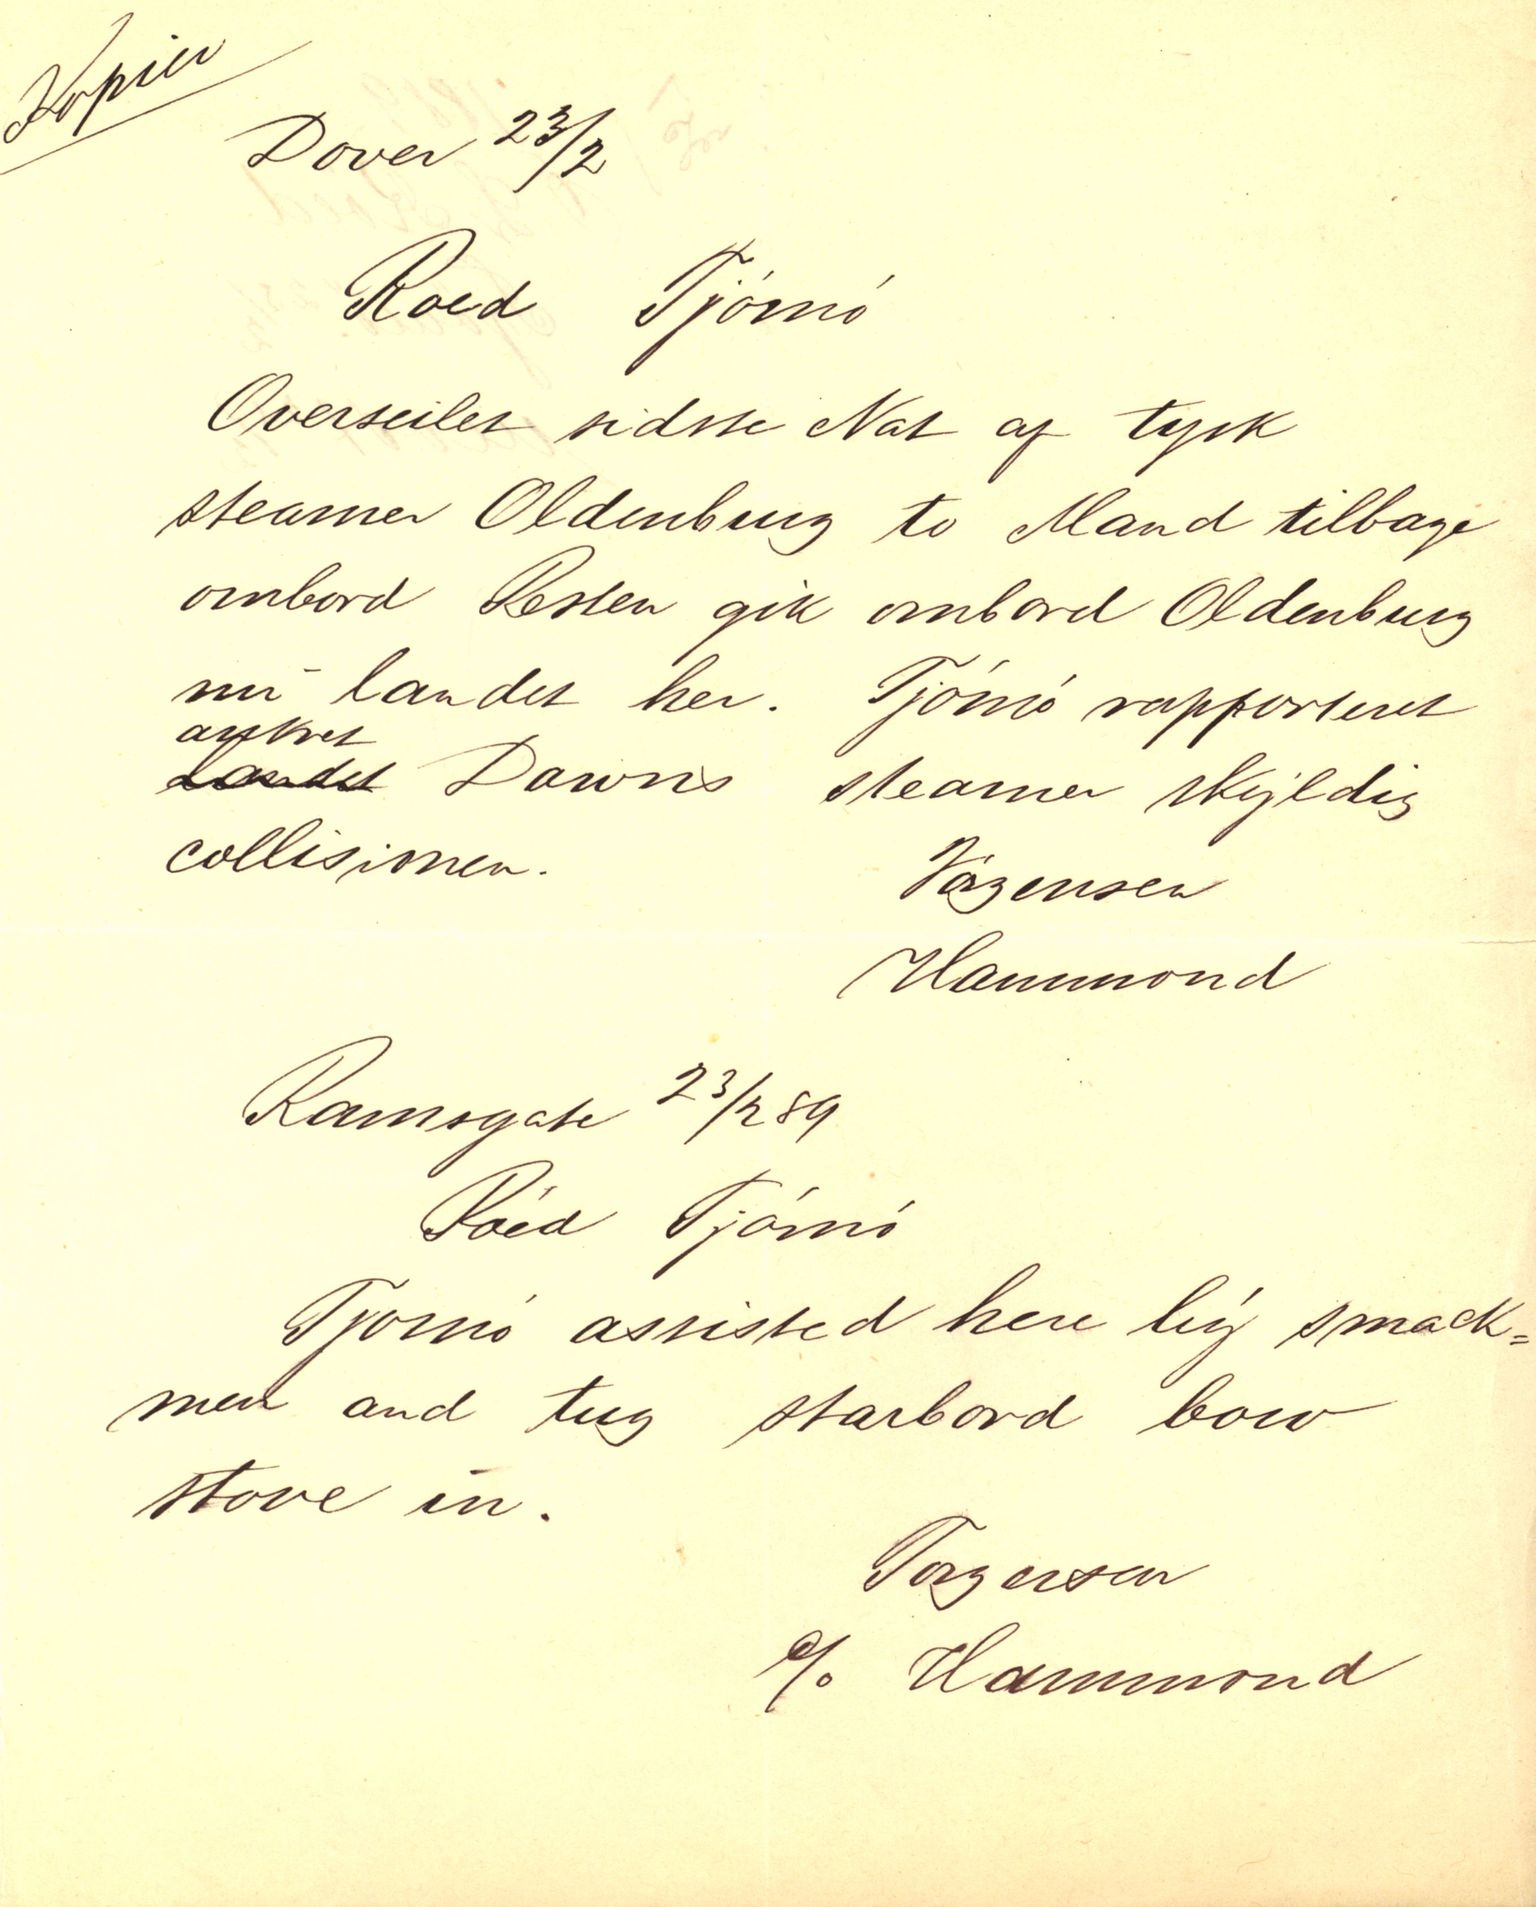 Kopier
Dover 23/2
Roed Tjömö
Overseilet sidste Nat af tysk
steamer Oldenburg to Mand tilbage
ombord Resten gik ombord Oldenburg
nu landet her. Tjömö rapporteret
ankret
landet Downs steamer skyldig
collisionen.
Jörgensen
Hammond
Ramsgate 23/2 89
Röed Tjömö
Tjomö assisted here by smack=
men and tug starbord bow
stove in.
Jorgensen
c/o Hammond